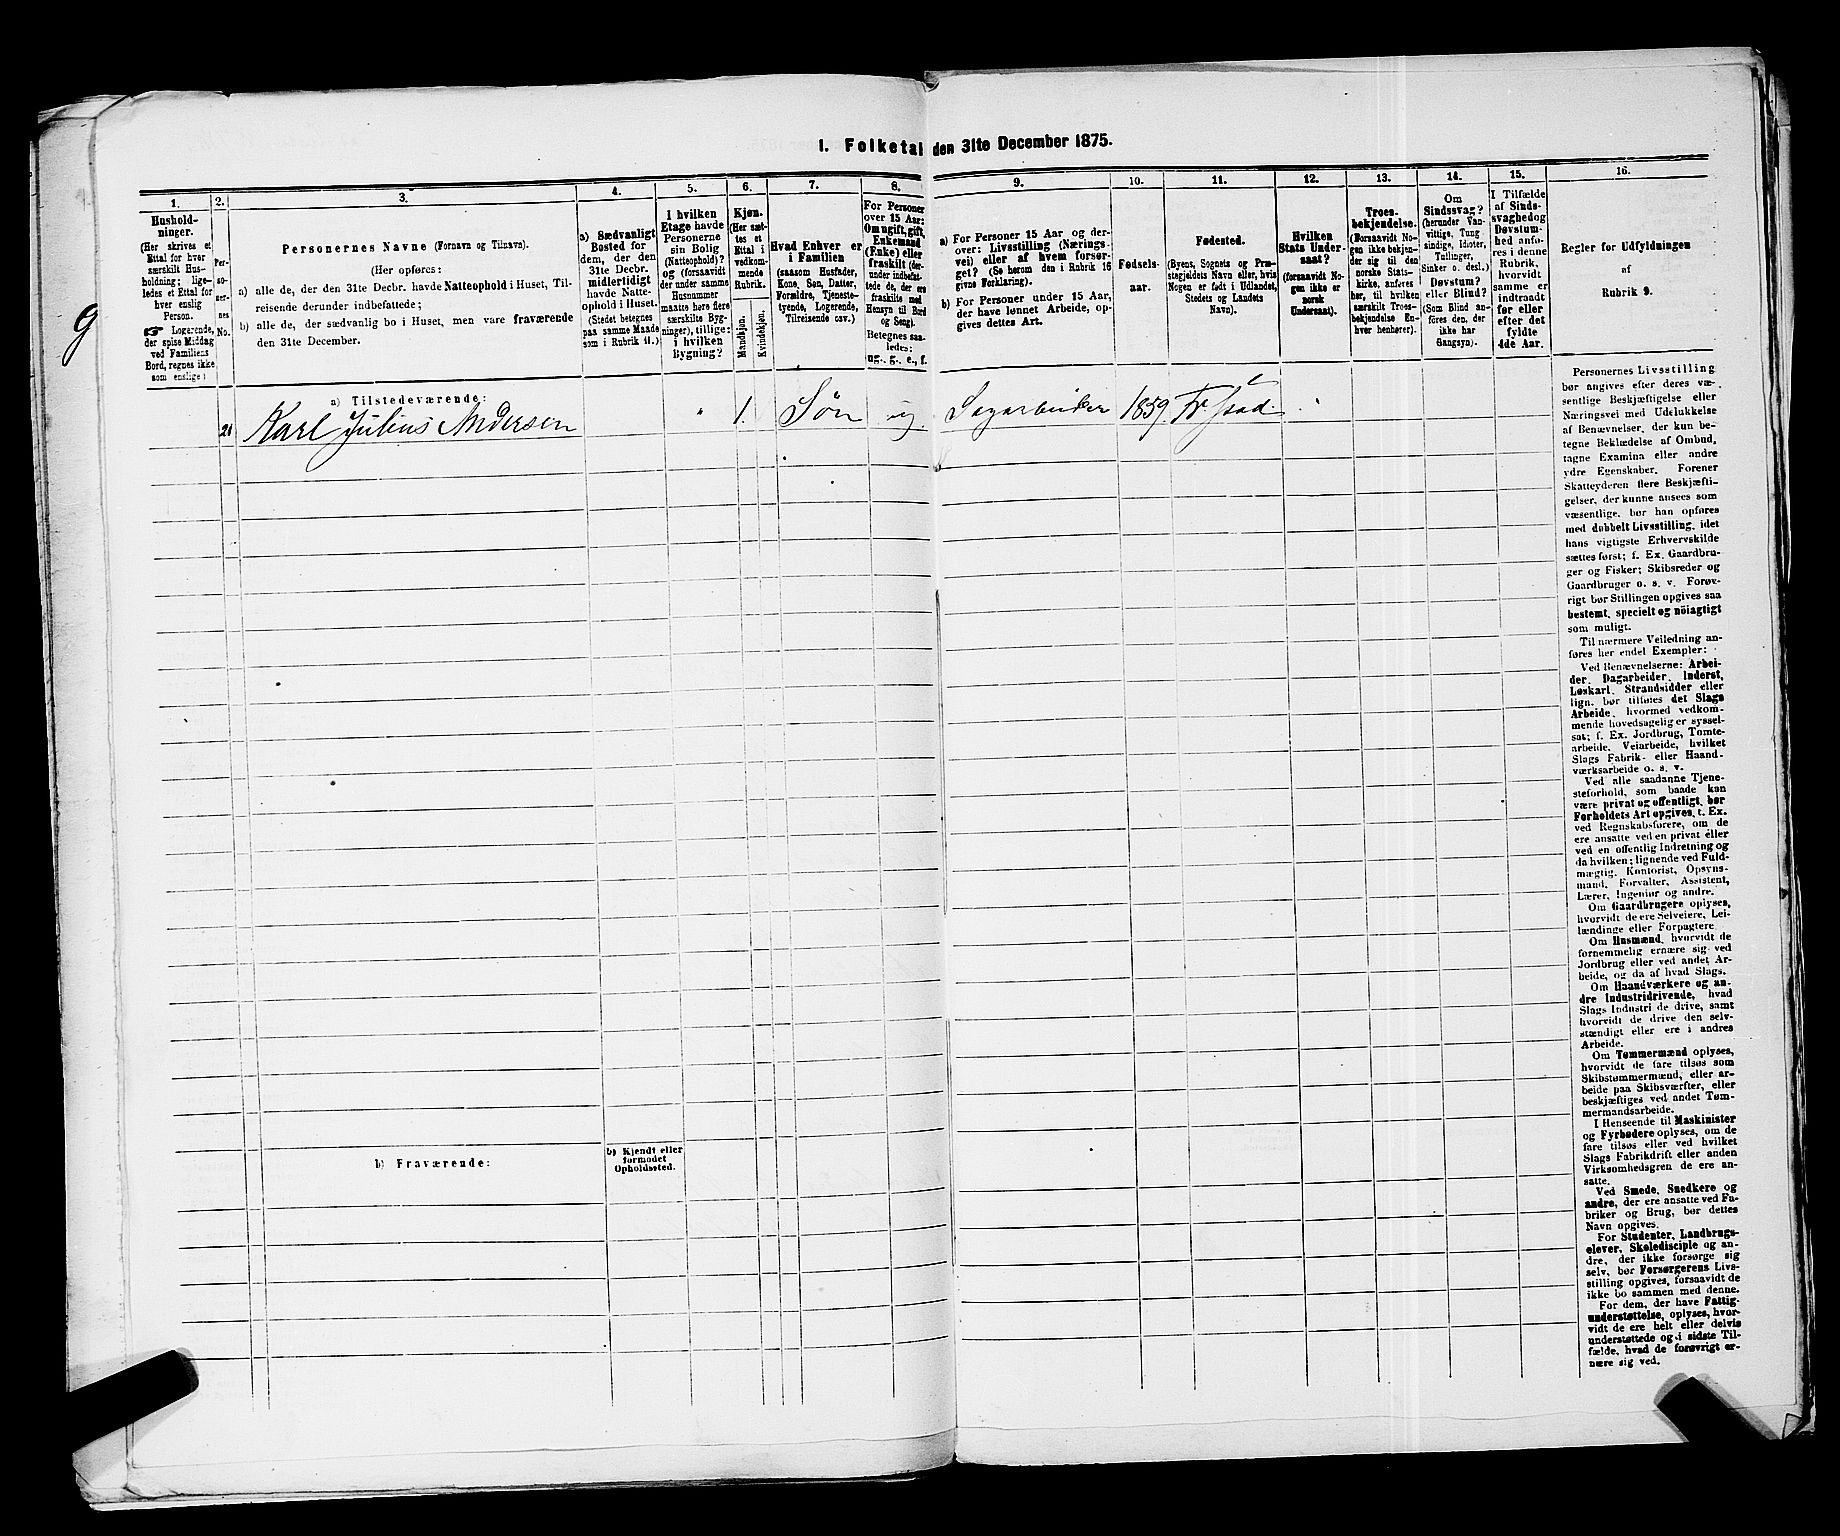 1. Folketal den 31te December 1875.
9
1.
Hushold-
ninger.
(Her skrives et
Ettal for hver
særskilt Hus-
holdning; lige-
ledes et Ettal for
hver enslig
Person.
☞ Logerende,
der spise Middag
ved Familiens
Bord, regnes ikke
som enslige)
2.
Per-
so-
ner-
nes
No.
3.
Personernes Navne (Fornavn og Tilnavn).
(Her opføres:
a) alle de, der den 31te Decbr. havde Natteophold i Huset, Til-
reisende derunder indbefattede;
b) alle de, der sædvanlig bo i Huset, men vare fraværende
den 31te December.
4.
a) Sædvanligt
Bosted for
dem, der den
31te Decbr.
midlertidigt
havde Natte-
ophold i Huset.
(Stedet betegnes
paa samme Maade
som i Rubrik 11.)
5.
I hvilken
Etage havde
Personerne
sin Bolig
(Natteophold)?
og (forsaavidt
der under samme
Husnummer
maatte høre flere
særskilte Byg-
ninger), tillige:
i hvilken
Bygning?
6.
Kjøn.
(Her sæt-
tes et
Ettal i
vedkom-
mende
Rubrik.
Mandkjøn.
Kvindekjøn.
7.
Hvad Enhver er
i Familien
(saasom Husfader,
Kone, Søn, Datter,
Forældre, Tjeneste-
tyende, Logerende,
Tilreisende osv.
8.
For Personer
over 15 Aar:
Om ugift, gift,
Enkemand
(Enke) eller
fraskilt (der-
under indbefat-
tede de, der ere
fraskilte med
Hensyn til Bord
og Seng).
Betegnes saa-
ledes:
ug., g., e., f.
9.
a) For Personer 15 Aar og der-
over: Livsstilling (Nærings-
vei) eller af hvem forsør-
get? (Se herom den i Rubrik 16
givne Forklaring).
b) For Personer under 15 Aar,
der have lønnet Arbeide, op-
gives dettes Art.
10.
Fødsels-
aar.
11.
Fødested.
(Byens, Sognets og Præ-
stegjeldets Navn eller, hvis
Nogen er født i Udlandet,
Stedets og Landets
Navn).
12.
Hvilken
Stats Under-
saat?
(forsaavidt No-
gen ikke er
norsk
Undersaat).
13.
Troes-
bekjendelse.
(Forsaavidt No-
gen ikke bekjen-
der sig til den
norske Stats-
kirke, anføres
her, til hvilken
særskilt Troes-
bekjendelse En-
hver henhører).
14.
Om
Sindssvag?
(herunder Van-
vittige, Tung-
sindige, Idioter,
Tullinger,
Sinker o. desl.)
Døvstum?
eller Blind?
(Som Blind an-
føres den, der
ikke har
Gangsyn).
15.
I Tilfælde
af Sinds-
svaghed og
Døvstum-
hed anfø-
res i denne
Rubrik,
hvorvidt
samme er
indtraadt
før eller
efter det
fyldte
4de Aar.
16.
Regler for Udfyldningen
af
Rubrik 9.
a) Tilstedeværende:
21 Karl Julius Andersen " 1. Søn ug. Sagarbeider 1859. Fr.stad.
b) Fraværende:
b) Kjendt eller
formodet
Opholdssted.
Personernes Livsstilling
bør angives efter deres væ-
sentlige Beskjæftigelse eller
Næringsvei med Udelukkelse
af Benævnelser, der kun be-
tegne Beklædelse af Ombud,
tagne Examina eller andre
ydre Egenskaber. Forener
Skatteyderen flere Beskjæfti-
gelser, der kunne ansees som
væsentlige, bør han opføres
med dobbelt Livsstilling, idet
hans vigtigste Erhvervskilde
sættes først; f. Ex. Gaardbru-
ger og Fisker; Skibsreder og
Gaardbruger o. s. v. Forøv-
rigt bør Stillingen opgives saa
bestemt, specielt og nöiagtigt
som muligt.
Til nærmere Veiledning an-
føres her endel Exempler:
Ved Benævnelserne: Arbei-
der, Dagarbeider, Inderst,
Løskarl, Strandsidder eller
lign. bør tilføies det Slags
Arbeide, hvormed vedkom-
mende hovedsagelig er syssel-
sat; f. Ex. Jordbrug, Tømte-
arbeide, Veiarbeide, hvilket
Slags Fabrik- eller Haand-
værksarbeide o. s. v.
Ved alle saadanne Tjene-
steforhold, som baade kan
være privat og offentligt, bør
Forholdets Art opgives, t. Ex.
ved Regnskabsførere, om de
ere ansatte ved en privat eller
ved en offentlig Indretning og
da hvilken; lignende ved Fuld-
mægtig, Kontorist, Opsyns-
mand, Forvalter, Assistent,
Lærer, Ingeniør og andre.
Om Gaardbrugere oplyses,
hvorvidt de ere Selveiere, Lei-
lændinge eller Forpagtere.
Om Husmænd, hvorvidt de
fornemmelig ernære sig ved
Jordbrug eller ved andet Ar-
beide, og da af hvad Slags.
Om Haandværkere og an-
dre Industridrivende, hvad
Slags Industri de drive, samt
hvorvidt de drive den selv-
stændigt eller ere i andres
Arbeide.
Om Tømmermænd oplyses,
hvorvidt de fare tilsøs som
Skibstømmermænd, eller ar-
beide paa Skibsværfter, eller
beskjæftiges ved andet Tøm-
mermandsarbeide.
I Henseende til Maskinister
og Fyrbødere oplyses, om de
fare tilsøs eller ved hvilket
Slags Fabrikdrift eller anden
Virksomhedsgren de ere an-
satte.
Ved Smede, Snedkere og
andre, der ere ansatte ved Fa-
briker og Brug, bør dettes
Navn opgives.
For Studenter, Landbrugs-
elever, Skoledisciple og an-
dre, der ikke forsørge sig
selv, bør Forsørgerens Livs-
stilling opgives, forsaavidt de
ikke bo sammen med denne.
For dem, der have Fattig-
understøttelse, oplyses, hvor-
vidt de ere helt eller delvis
understøttede og i sidste Til-
fælde, hvad de forøvrigt er-
nære sig ved.